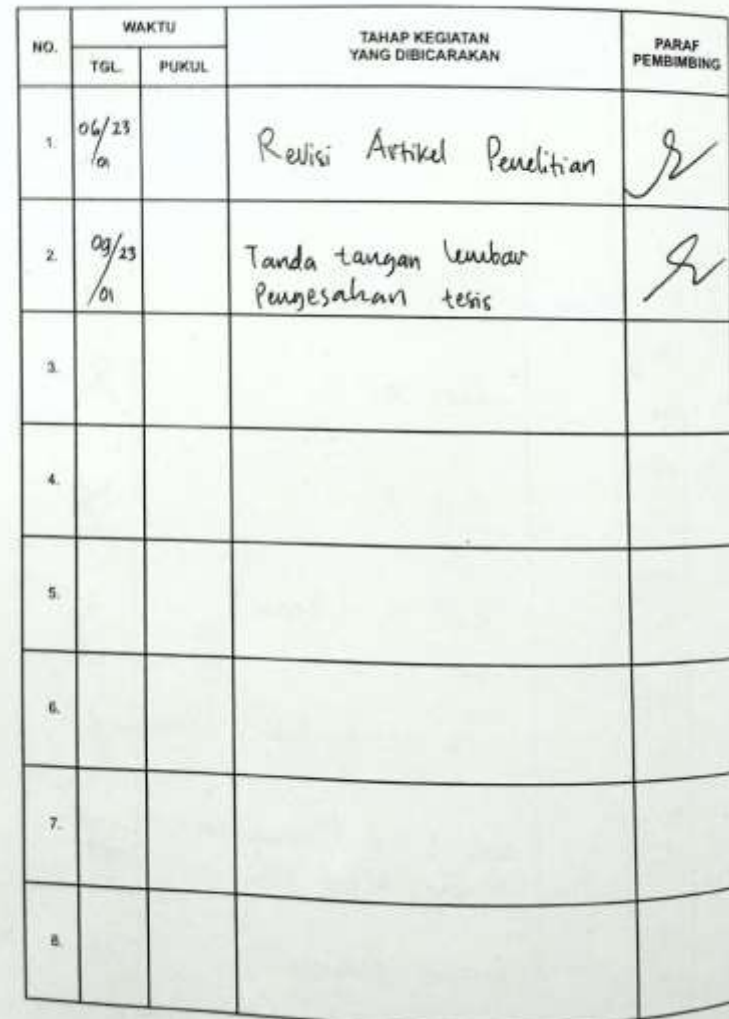 NO.
WAKTU
TAHAP KEGIATAN
YANG DIBICARAKAN
PARAF
PEMBIMBING
TGL.
PUKUL
1.
06/23
/01
Revisi Artikel Penelitian
2.
09/23
/01
Tanda tangan lembar
Pengesahan tesis
3.
4.
5.
6.
7.
8.